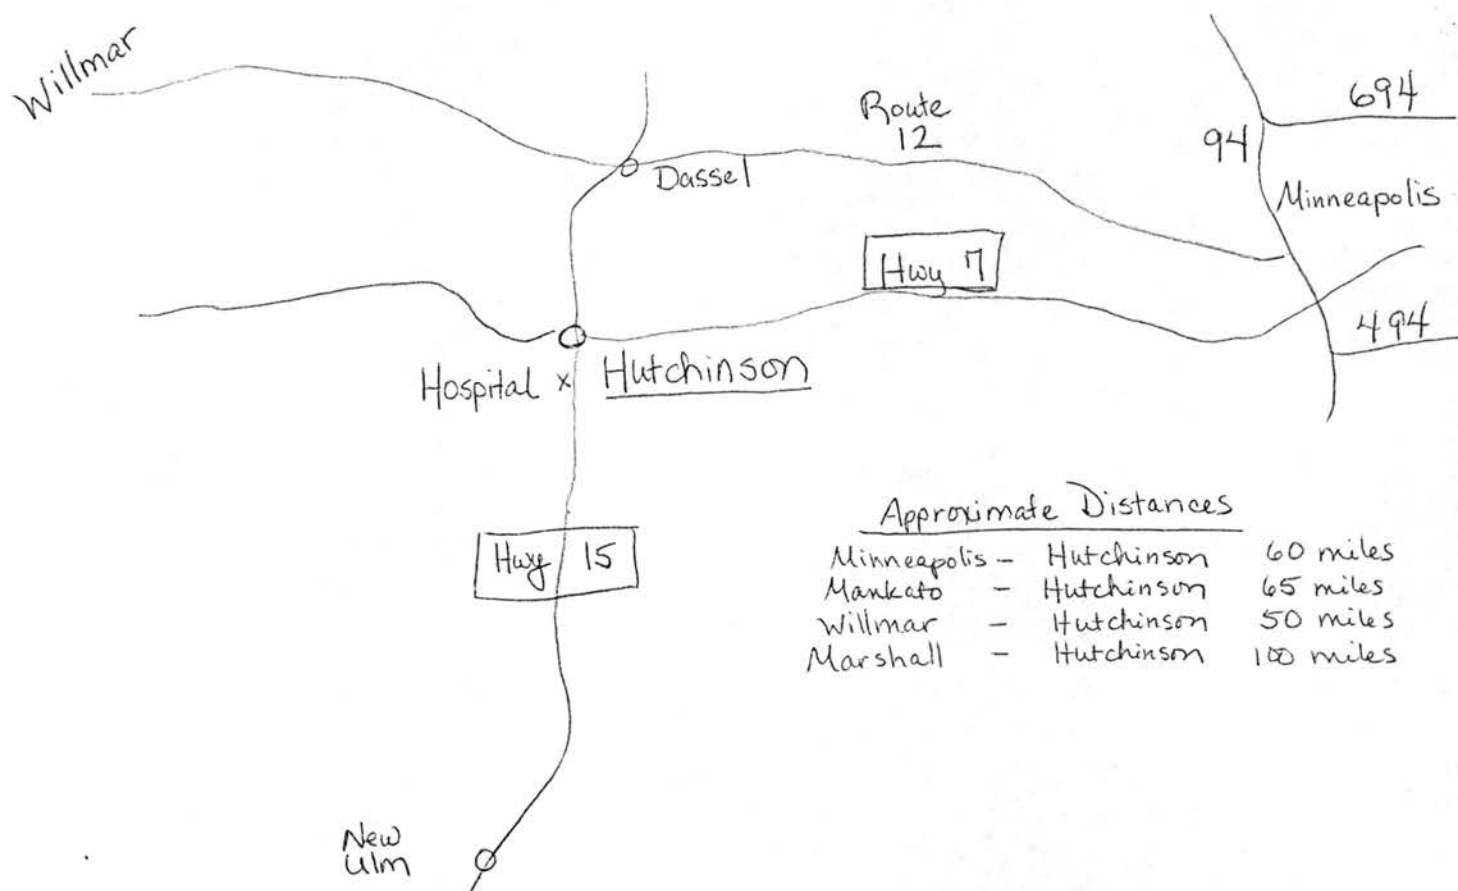 Willmar
Route
12
694
94
Dassel
Minneapolis
Hwy 7
494
Hospital x Hutchinson
Approximate Distances
Minneapolis - Hutchinson 60 miles
Mankato - Hutchinson 65 miles
Willmar - Hutchinson 50 miles
Marshall - Hutchinson 100 miles
Hwy 15
New
Ulm